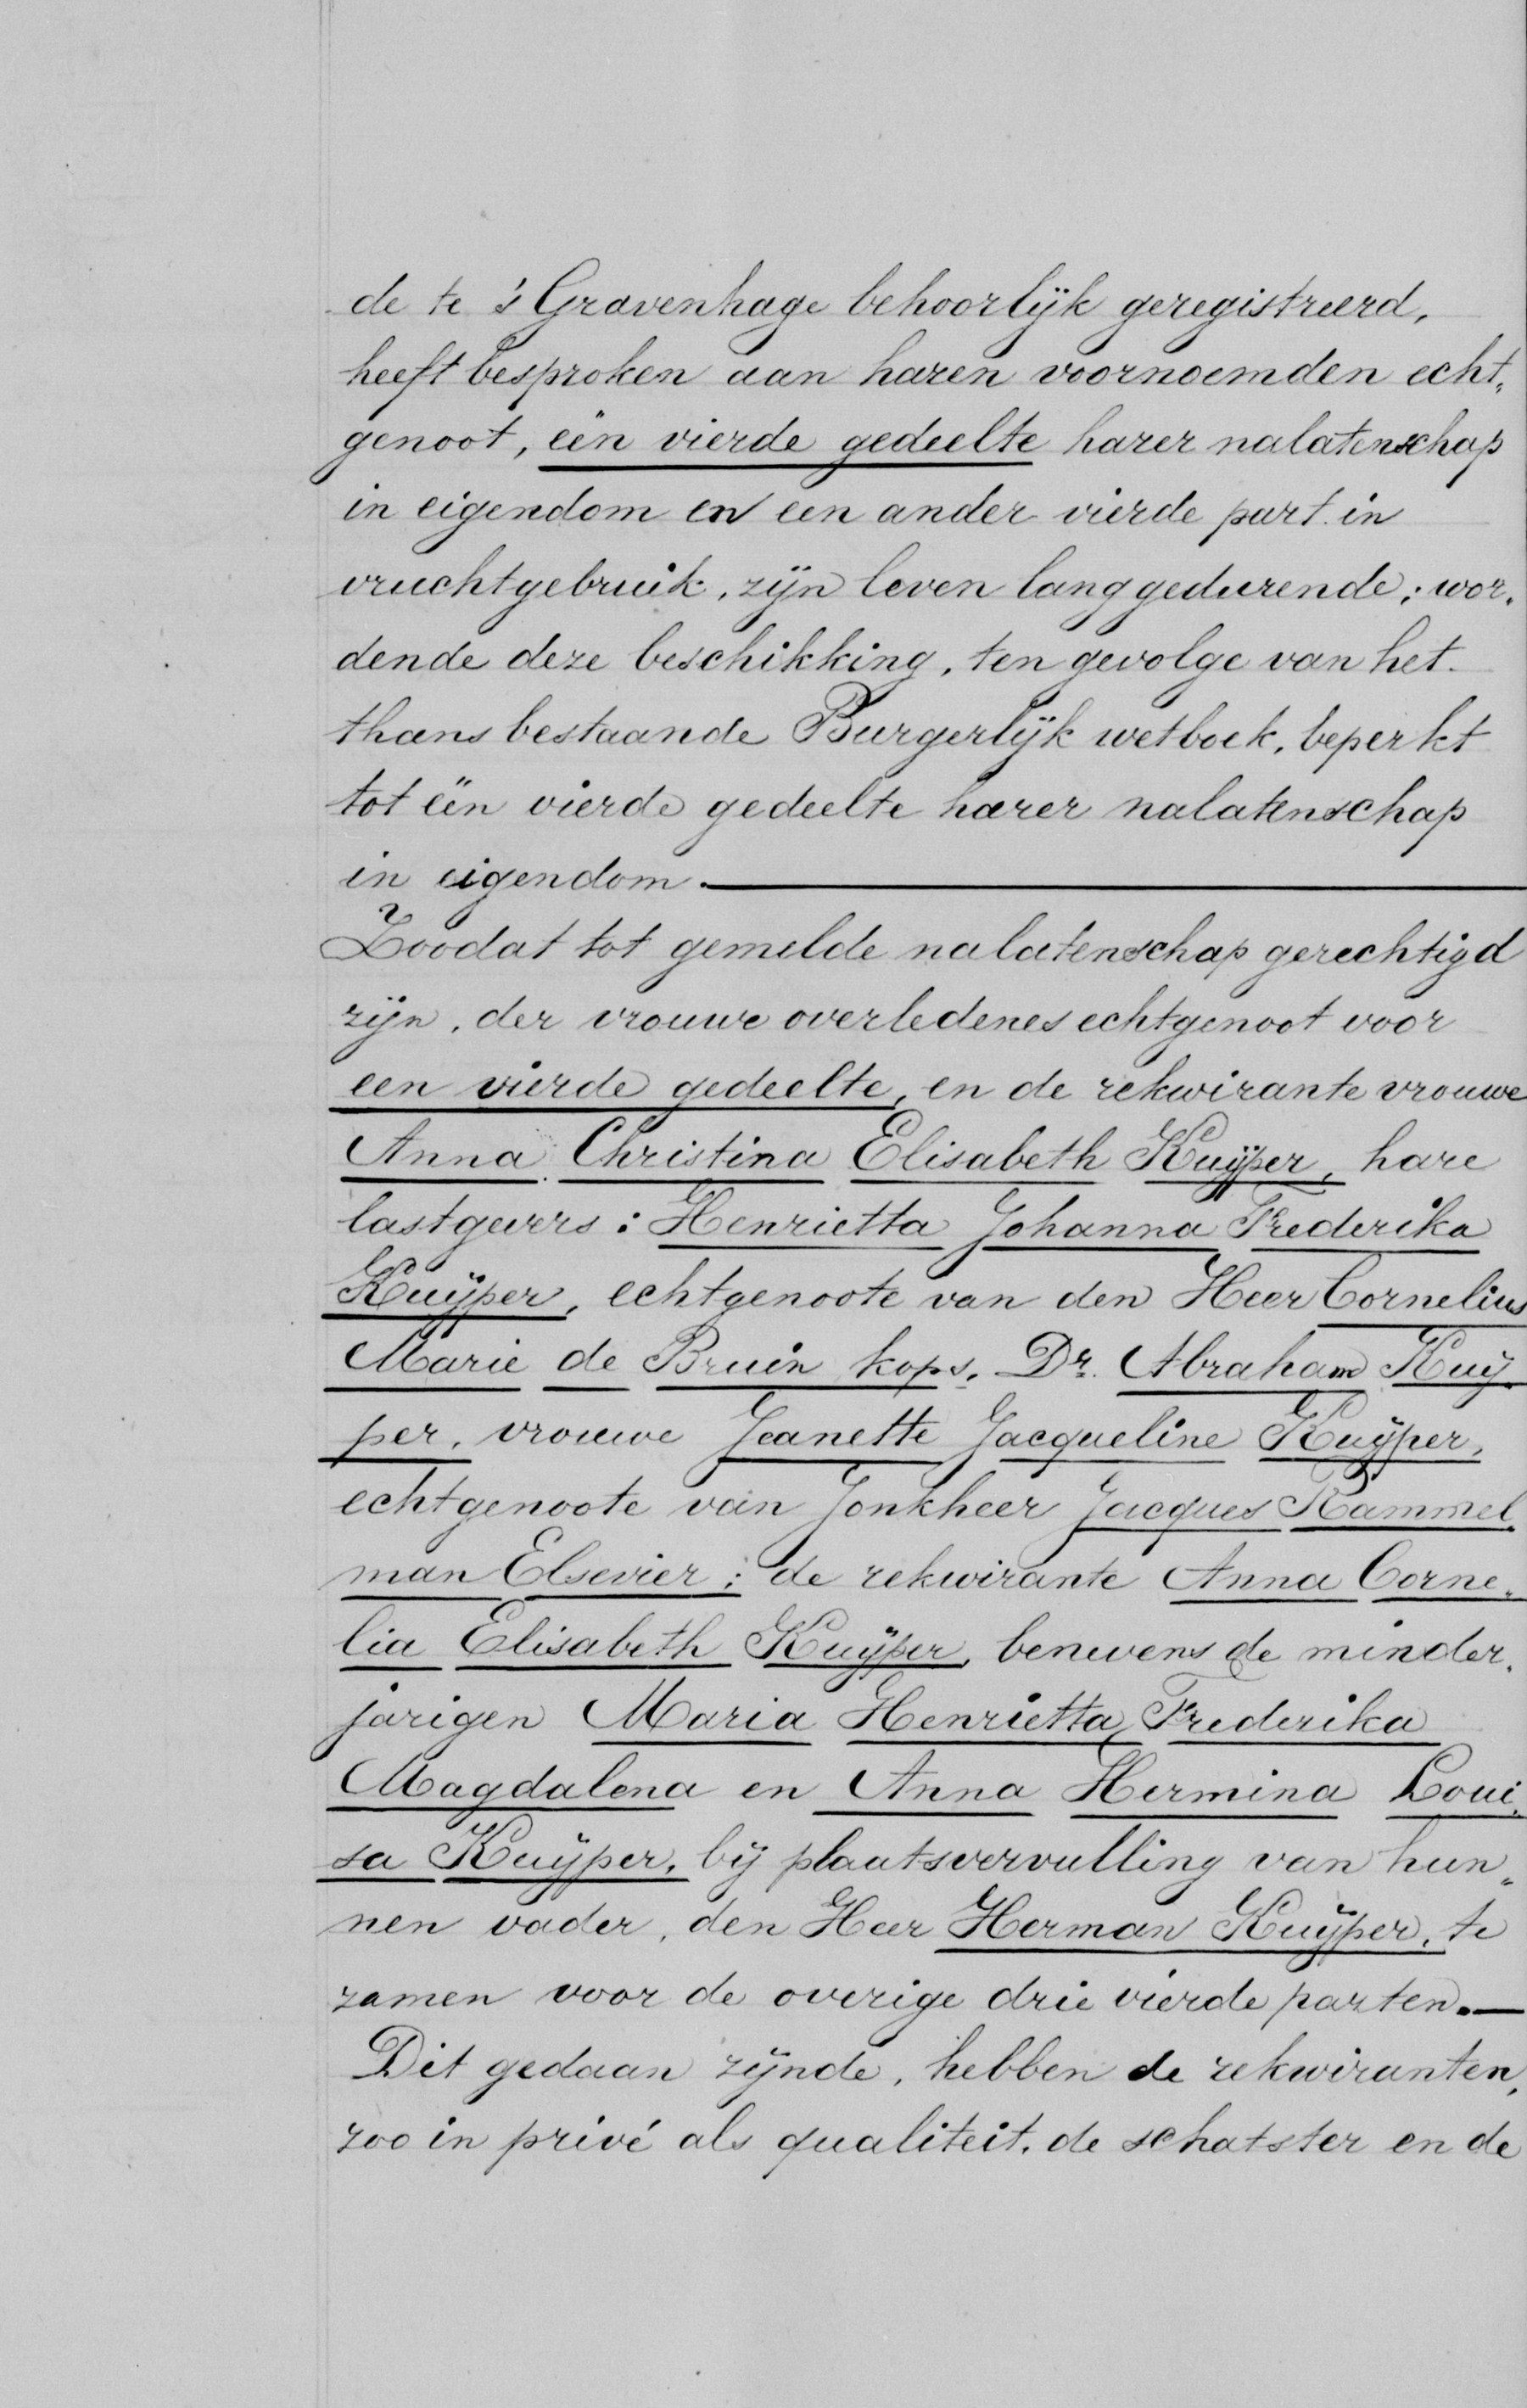 de te 's Gravenhage behoorlijk geregistreerd,
heeft besproken aan haren voornoemden echt„
genoot, één vierde gedeelte harer nalatenschap
in eigendom en een ander vierde part in
vruchtgebruik, zijn leven lang gedurende; wor„
dende deze beschikking, ten gevolge van het
thans bestaande Burgerlijk wetboek, beperkt
tot één vierde gedeelte harer nalatenschap
in eigendom.
Zoodat tot gemelde nalatenschap gerechtigd
zijn, der vrouwe overledenes echtgenoot voor
een vierde gedeelte, en de rekwirante vrouwe
Anna Christina Elisabeth Kuijper, hare
lastgevers: Henrietta Johanna Frederika
Kuijper, echtgenoote van den Heer Cornelius
Marie de Bruin kops, Dr. Abraham Kuij„
per, vrouwe Jeanette Jacqueline Kuijper,
echtgenoote van Jonkheer Jacques Rammel„
man Elsevier; de rekwirante Anna Corne„
lia Elisabeth Kuijper, benevens de minder„
jarigen Maria Henrietta Frederika
Magdalena en Anna Hermina Loui„
sa Kuijper, bij plaatsvervulling van hun„
nen vader, den Heer Herman Kuijper, te
zamen voor de overige drie vierde parten.—
Dit gedaan zijnde, hebben de rekwiranten,
zoo in privé als qualiteit, de schatster en de